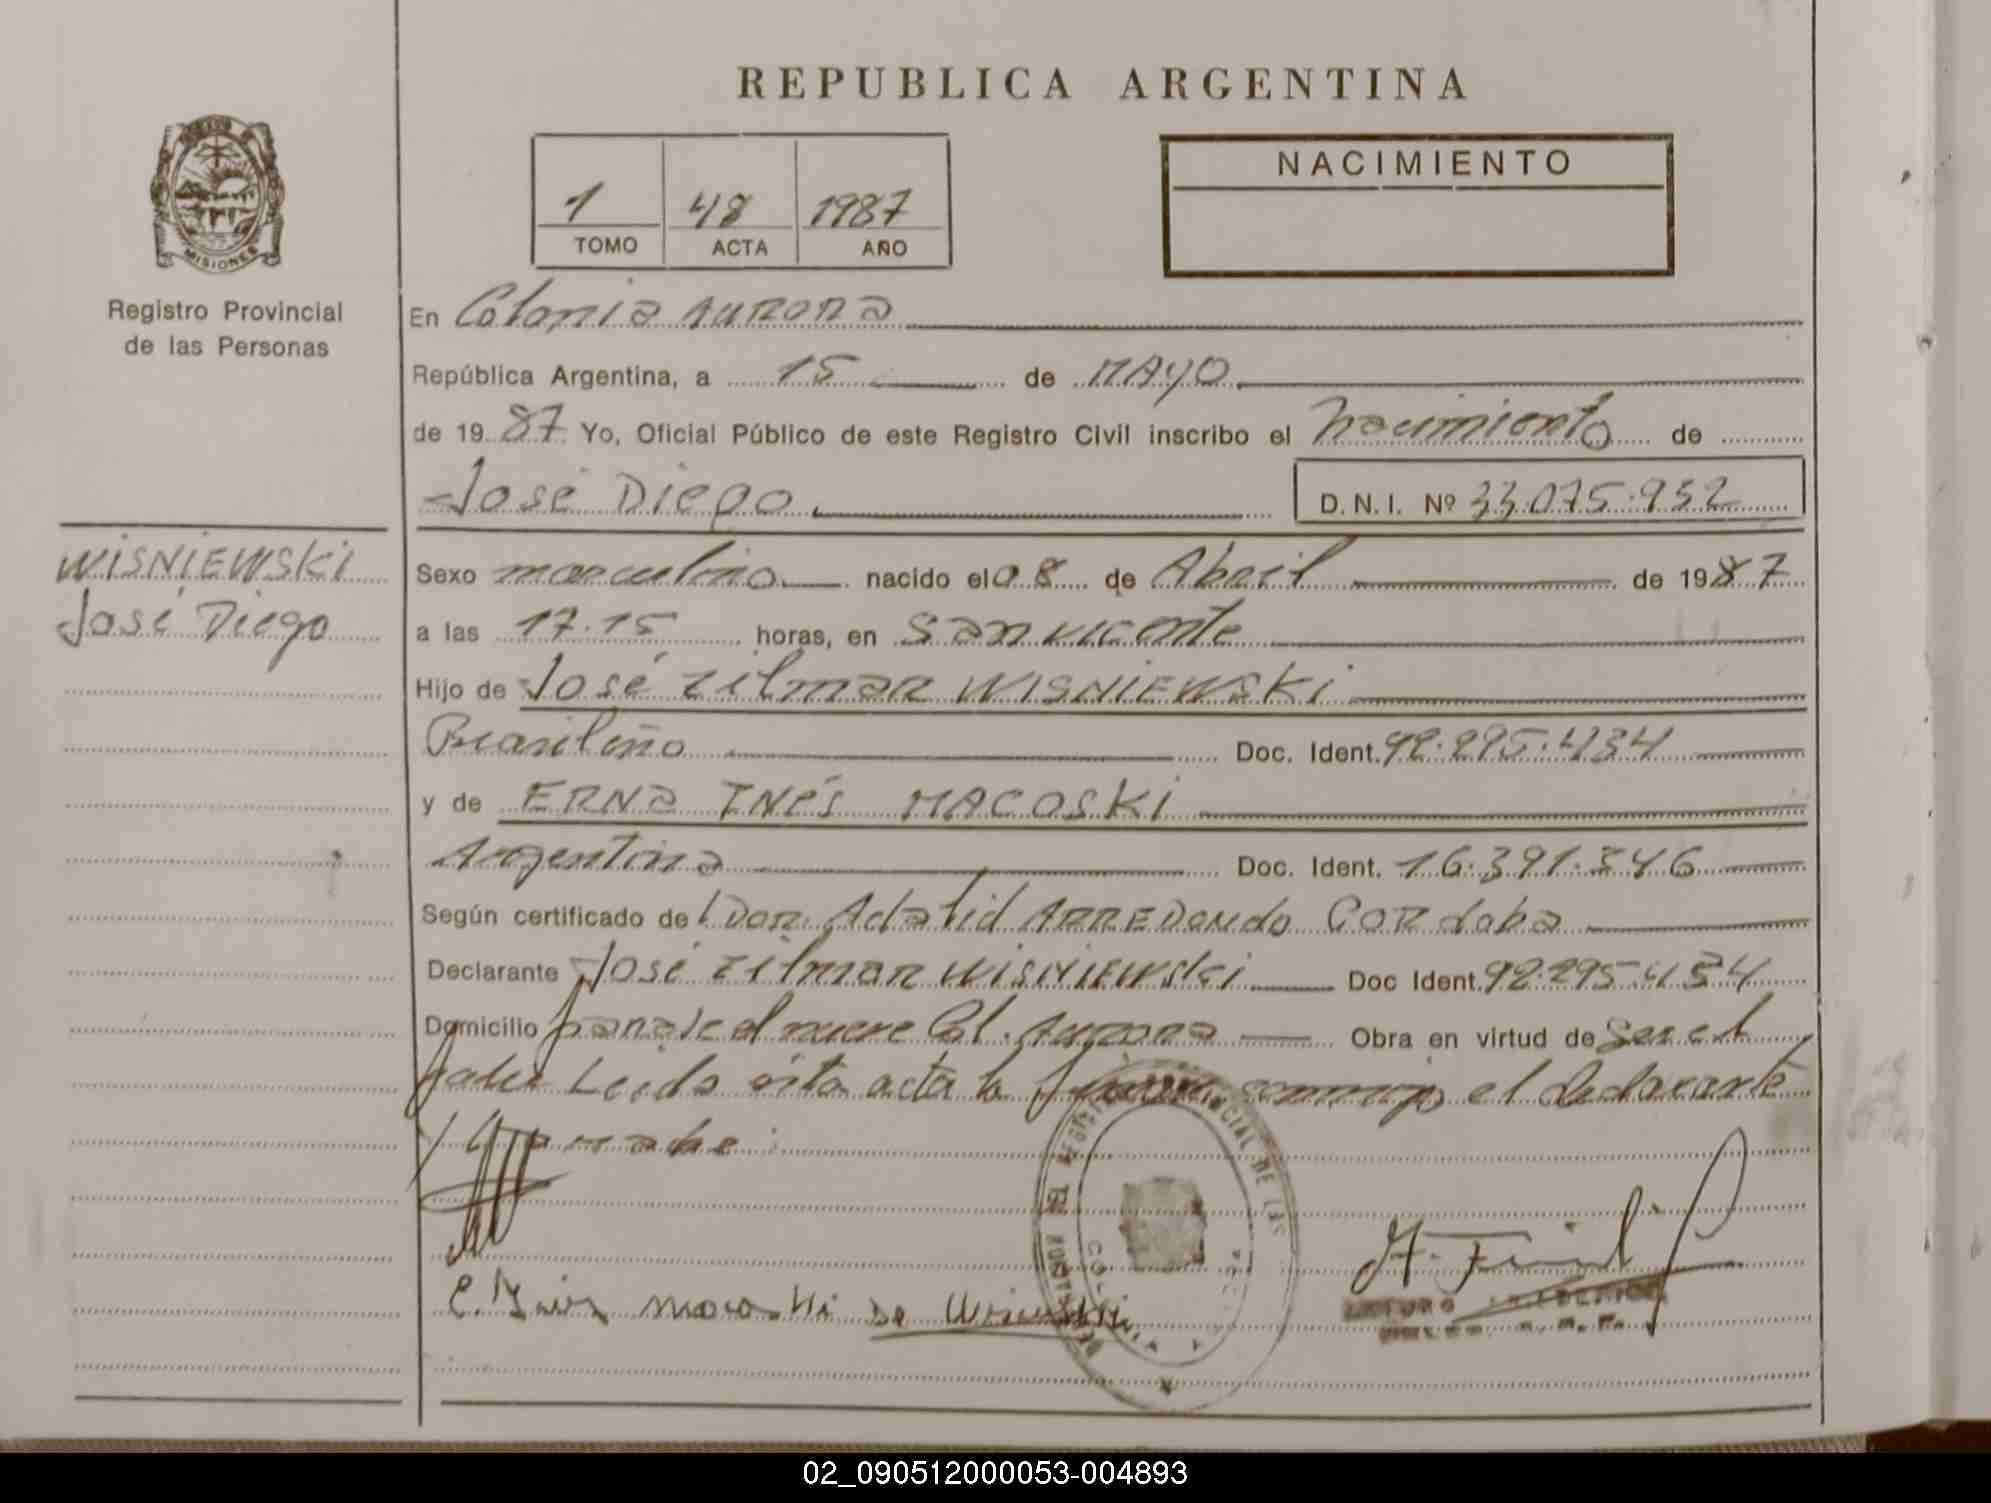 REPUBLICA ARGENTINA
1 48 1987
TOMO ACTA AÑO
NACIMIENTO
MISIONES
Registro Provincial
de las Personas
WISNIEWSKI
José Diego
En Colonia Aurora
República Argentina, a 15 de MAYO
de 1987 Yo, Oficial Público de este Registro Civil inscribo el Nacimiento de
José Diego D.N.I. Nº 33.075.952
Sexo masculino nacido el 08 de Abril de 1987
a las 17.15 horas, en San Vicente
Hijo de José Zilmar WISNIEWSKI
Brasileño Doc. Ident. 92.295.434
y de ERNA INÉS MACOSKI
Argentina Doc. Ident. 16.391.346
Según certificado de Adalid ARREDONDO CORdoba
Declarante José Zilmar WISNIEWSKI Doc Ident. 92.295.434
Domicilio Col. Aurora Obra en virtud de Ser el
Padre Leida esta acta la el Declarante
y la madre
REGISTRO PROVINCIAL DE LAS
02_090512000053-004893